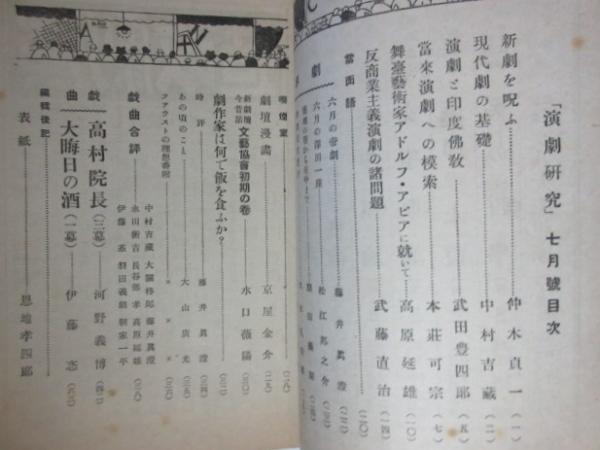 「演劇研究」七月號目次
新劇を呪ふ……仲木貞一(一)
現代劇の基礎……中村吉蔵(二)
演劇と印度佛教……武田豊四郎(五)
當來演劇への模索……本莊可宗(七)
舞臺藝術家アドルフ・アピアに就いて……高原延雄(一〇)
反商業主義演劇の諸問題……武藤直治(一四)
當面語……(二〇)
劇
六月の帝劇……藤井眞澄
六月の澤田一座……松江郎之介
喫煙室……(二八)
劇壇漫畫……京屋金介
新劇壇今昔話 文藝協會初期の卷……水口薇陽
劇作家は何で飯を食ふか?……(三三)
時評……藤井眞澄
あの頃のこと……大山廣光
ファウストの理想舞臺
戯曲合評
中村吉藏 大關柊郎 藤井眞澄
永田衡吉 長谷部孝 高原延雄
戯曲 高村院長(三幕)……河野義博
大晦日の酒(一幕)……伊藤
編輯後記
表紙……恩地孝四郎